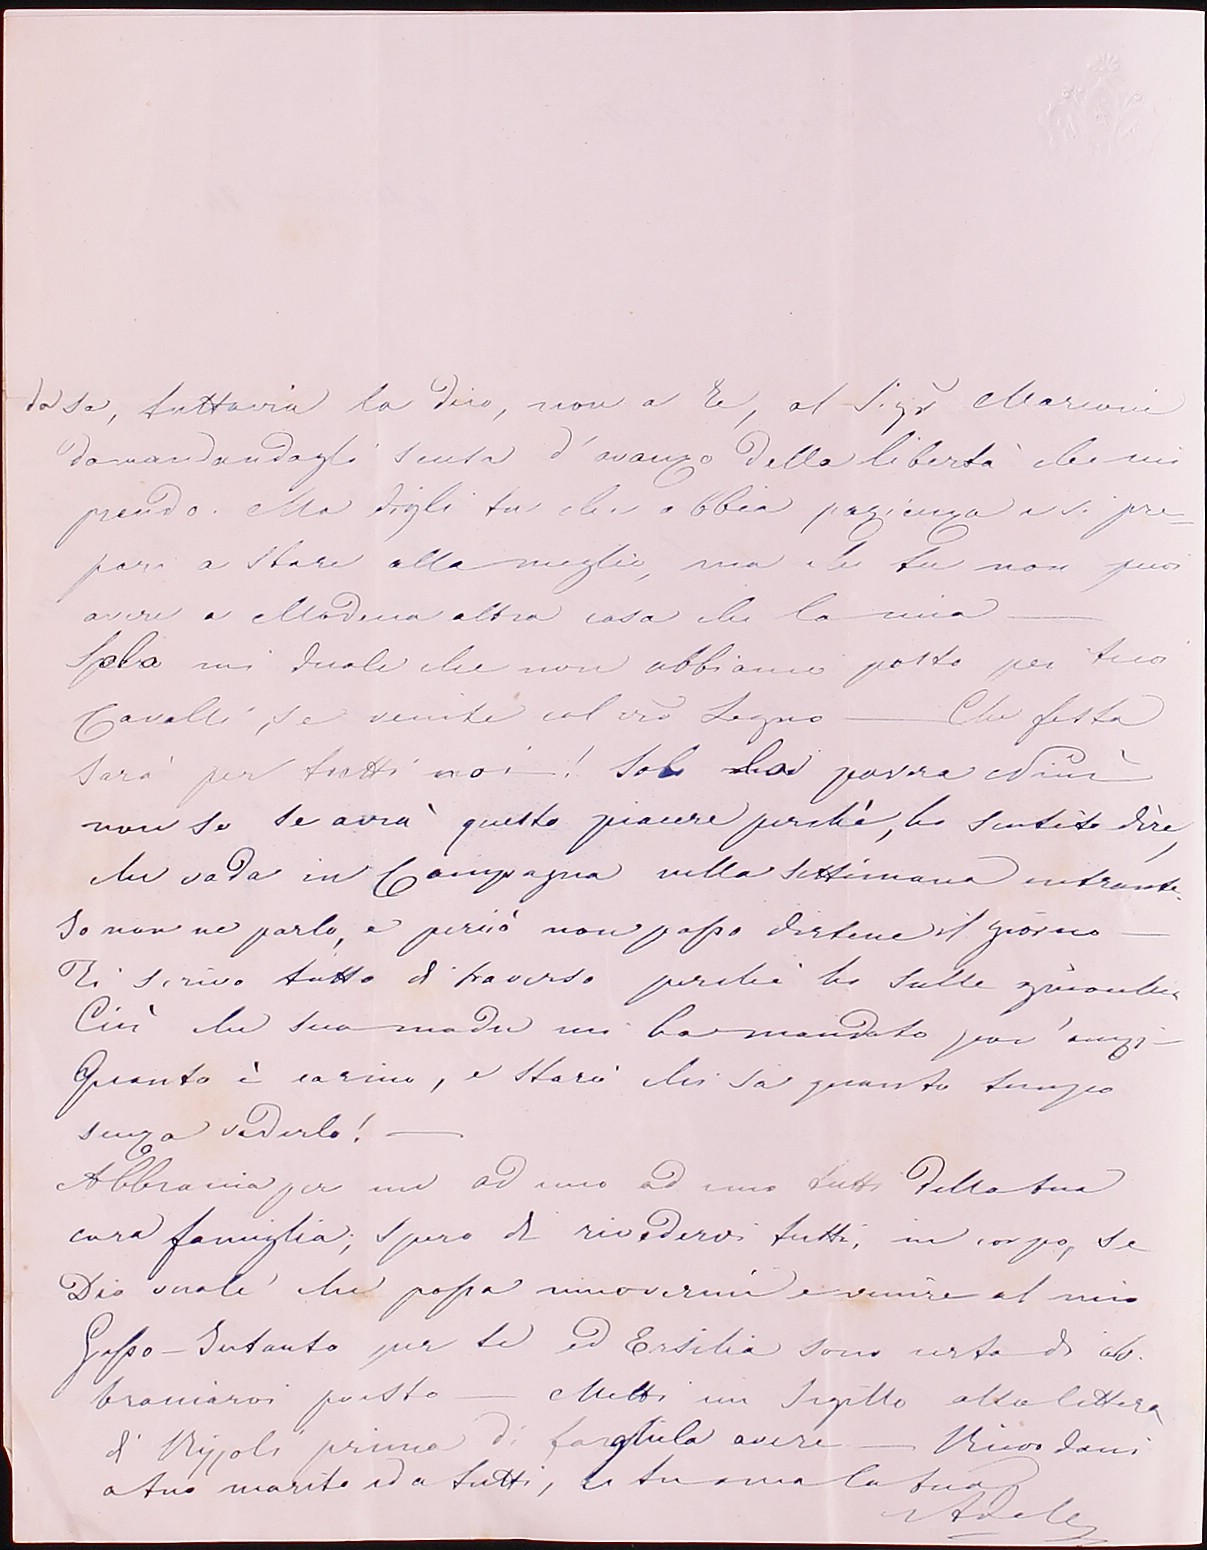 da se, tuttavia lo dico, non a te, al Sigr Marconi
domandandogli scusa d'avanzo della libertà che mi
prendo. Ma digli tu che abbia pazienza e si pre-
pari a stare alla meglio, ma che tu non puoi
avere a Modena altra casa che la mia —
Solo mi duole che non abbiamo posto per i tuoi
Cavalli, se venite col vro Legno — Che festa
sarà per tutti noi! Solo la povera
non so se avrà questo piacere perchè, ho sentito dire,
che vada in Campagna nella settimana entrante.
Io non ne parlo, e perciò non posso dirtene il giorno —
Ti scrivo tutto di traverso perchè ho sulle ginocchia
Cici che sua madre mi ha mandato
Quanto è carino, e starò chi sa quanto tempo
senza vederlo! —
Abbraccia per me ad uno ad uno tutti della tua
cara famiglia; spero di rivedervi tutti, in corpo, se
Dio vuole che possa muovermi e venire al mio
Gosso — Intanto per te ed Ersilia sono certa di ab-
bracciarvi presto — Metti un Sigillo alla lettera
di Rizzoli prima di fargliela avere — Ricordami
a tuo marito ed a tutti, e tu ama la tua
Adele